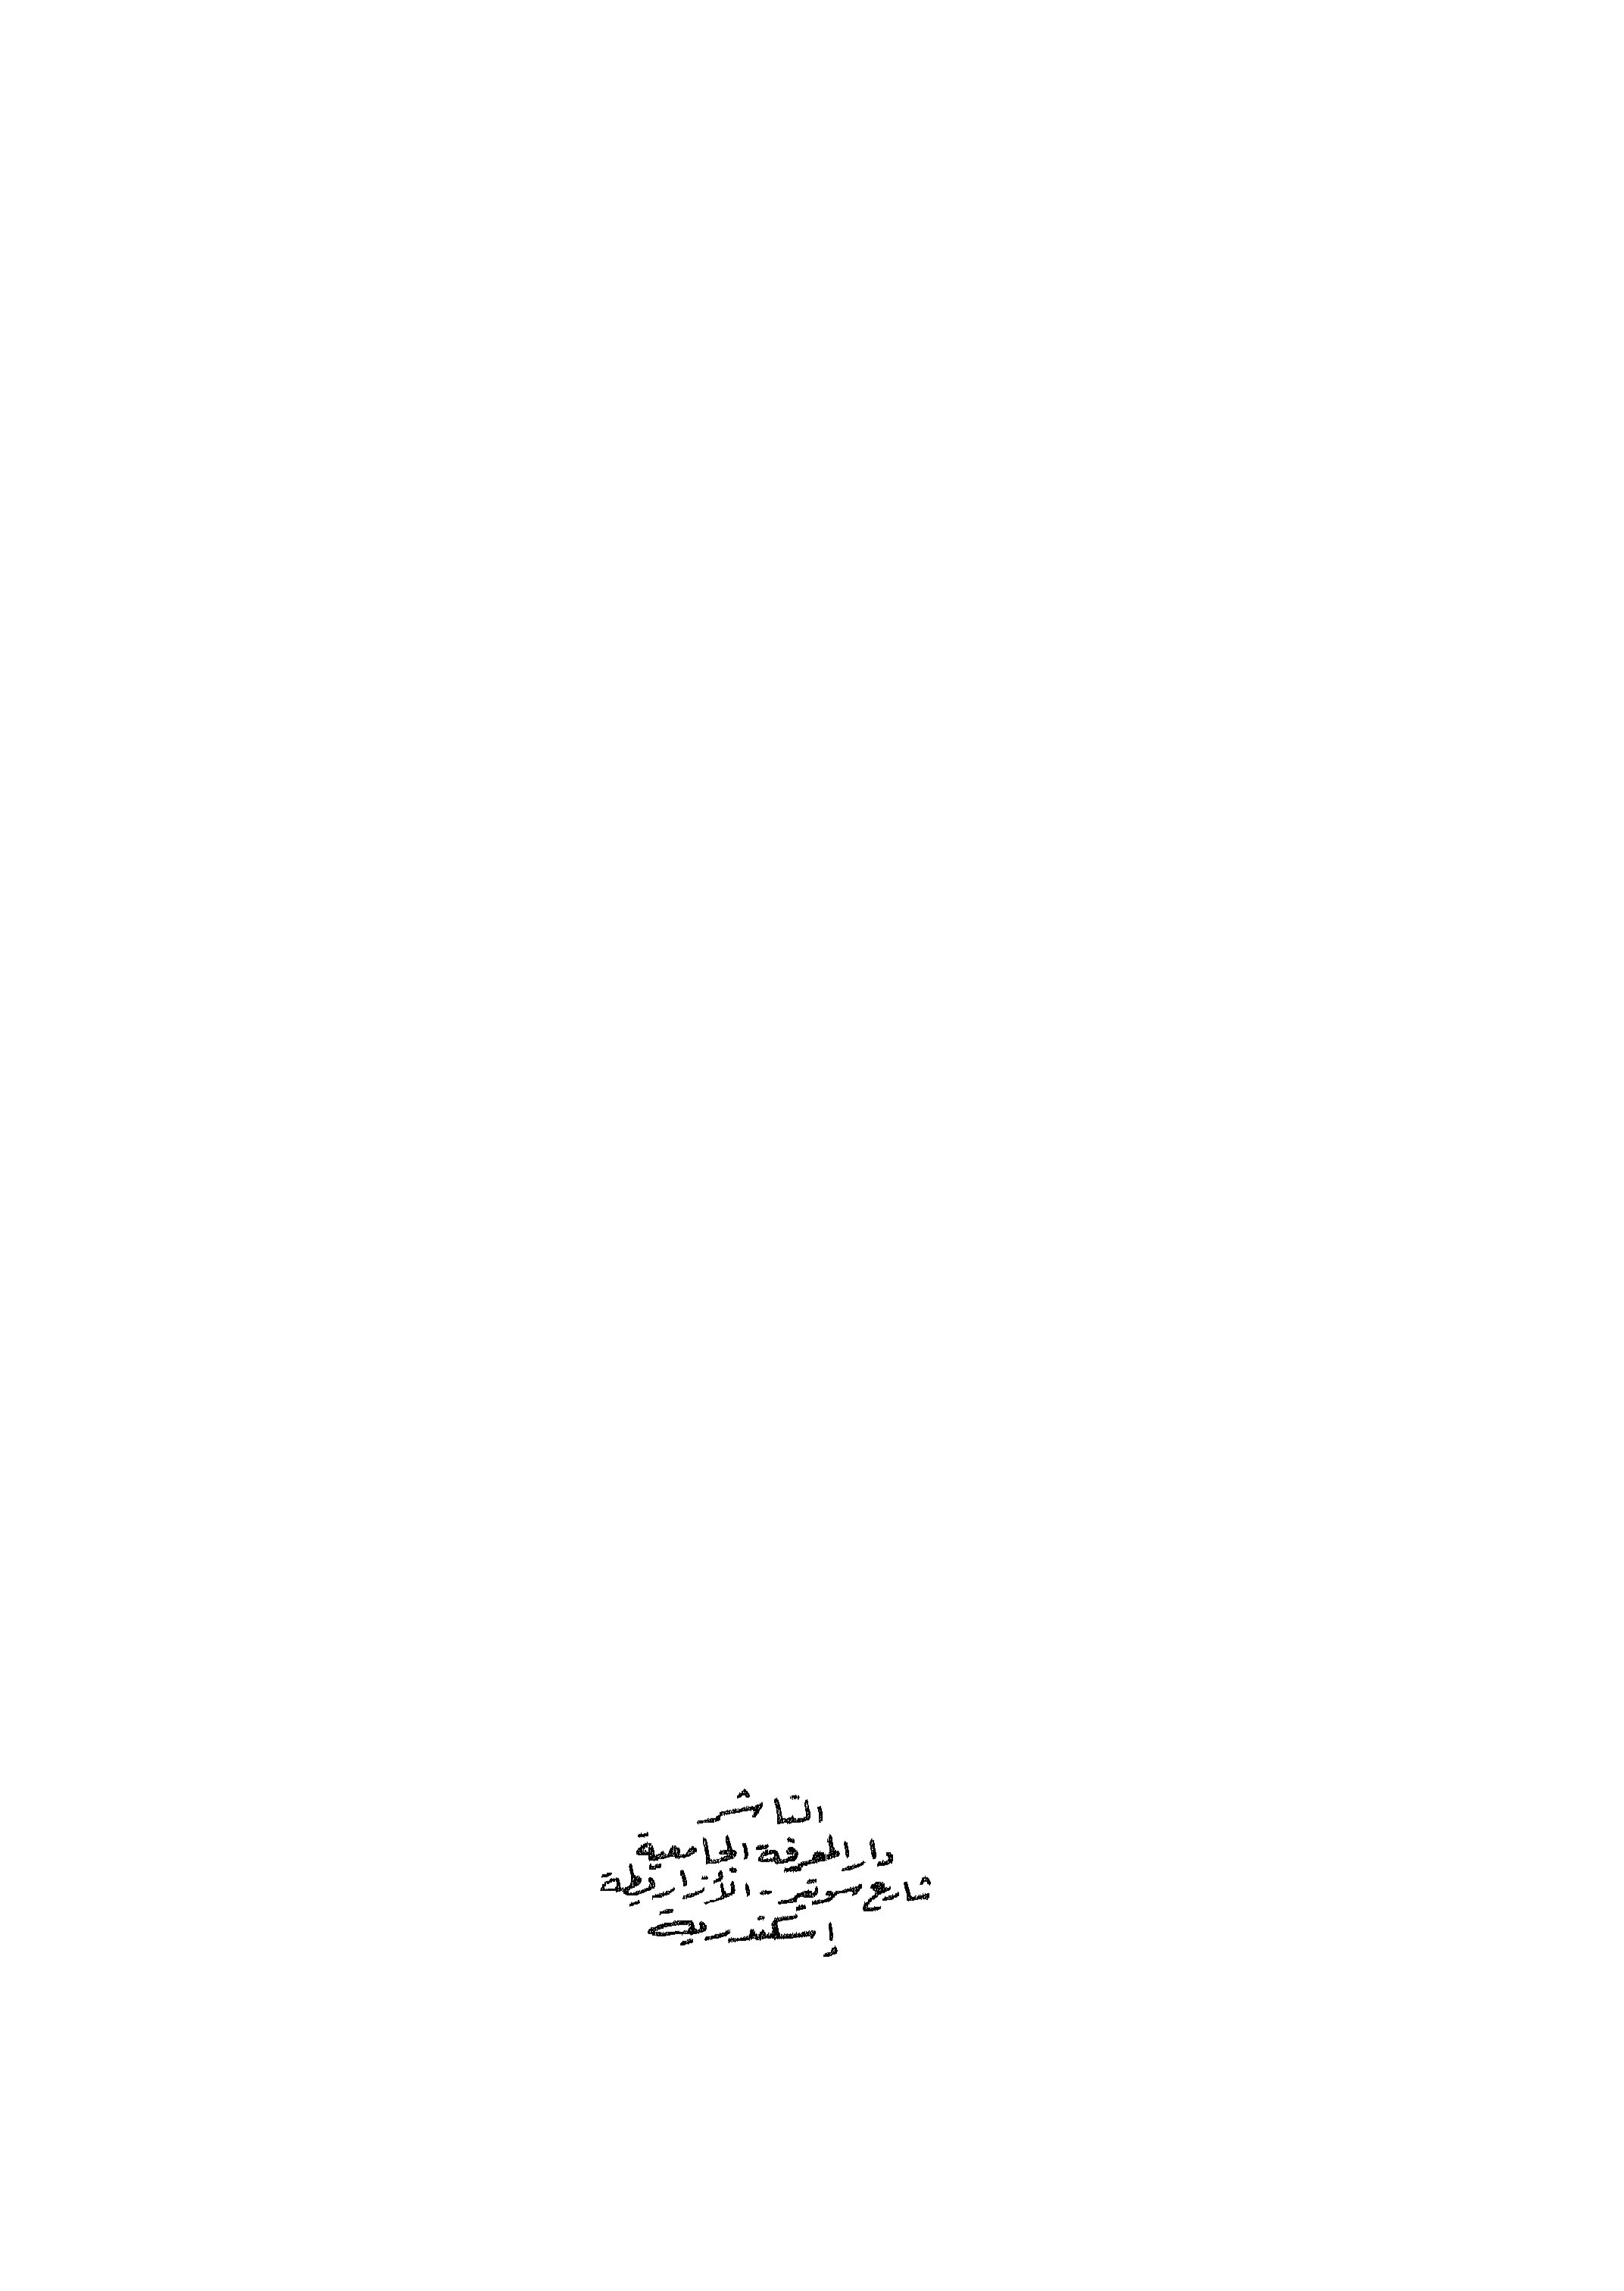 الناشر
دار المعرفة الجامعية
شارع سوتير - الأزاريطة
إسكندرية